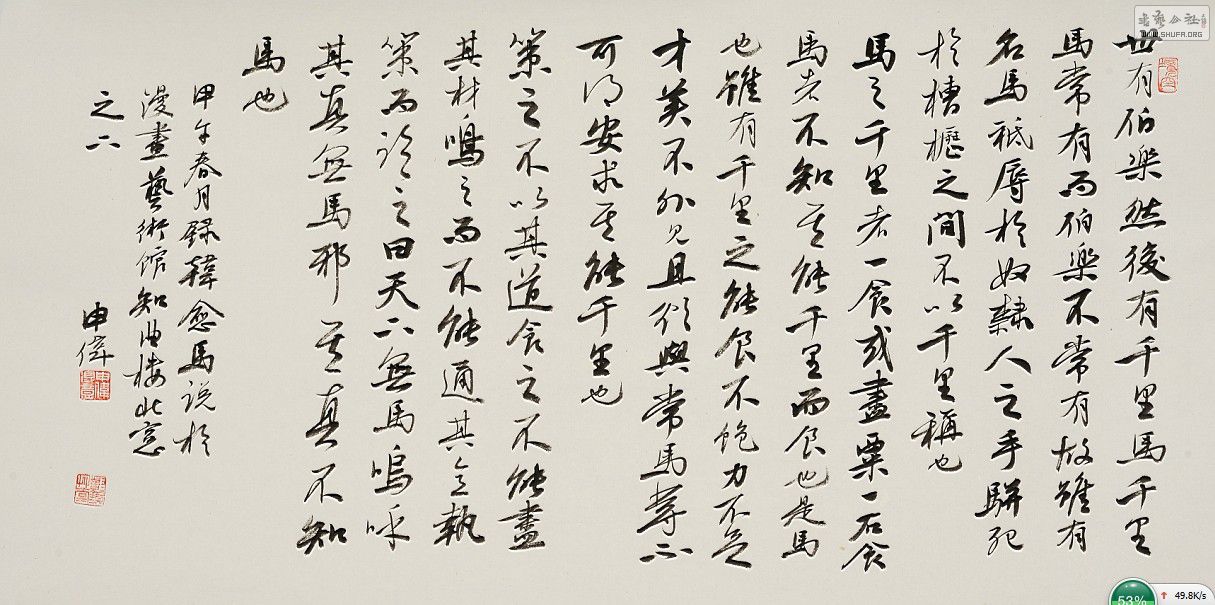 世有伯樂然後有千里馬千里
馬常有而伯樂不常有故雖有
名馬祗辱於奴隸人之手駢死
於槽櫪之間不以千里稱也
馬之千里者一食或盡粟一石食
馬者不知其能千里而食也是馬
也雖有千里之能食不飽力不足
才美不外見且欲與常馬等不
可得安求其能千里也
策之不以其道食之不能盡
其材鳴之而不能通其意執
策而臨之曰天下無馬嗚呼
其真無馬邪其真不知
馬也
甲午春月錄韓愈馬说於
漫畫藝術館知曲楼北窓
之下
申偉
WWW.SHUFA.ORG
53%
49.8K/s